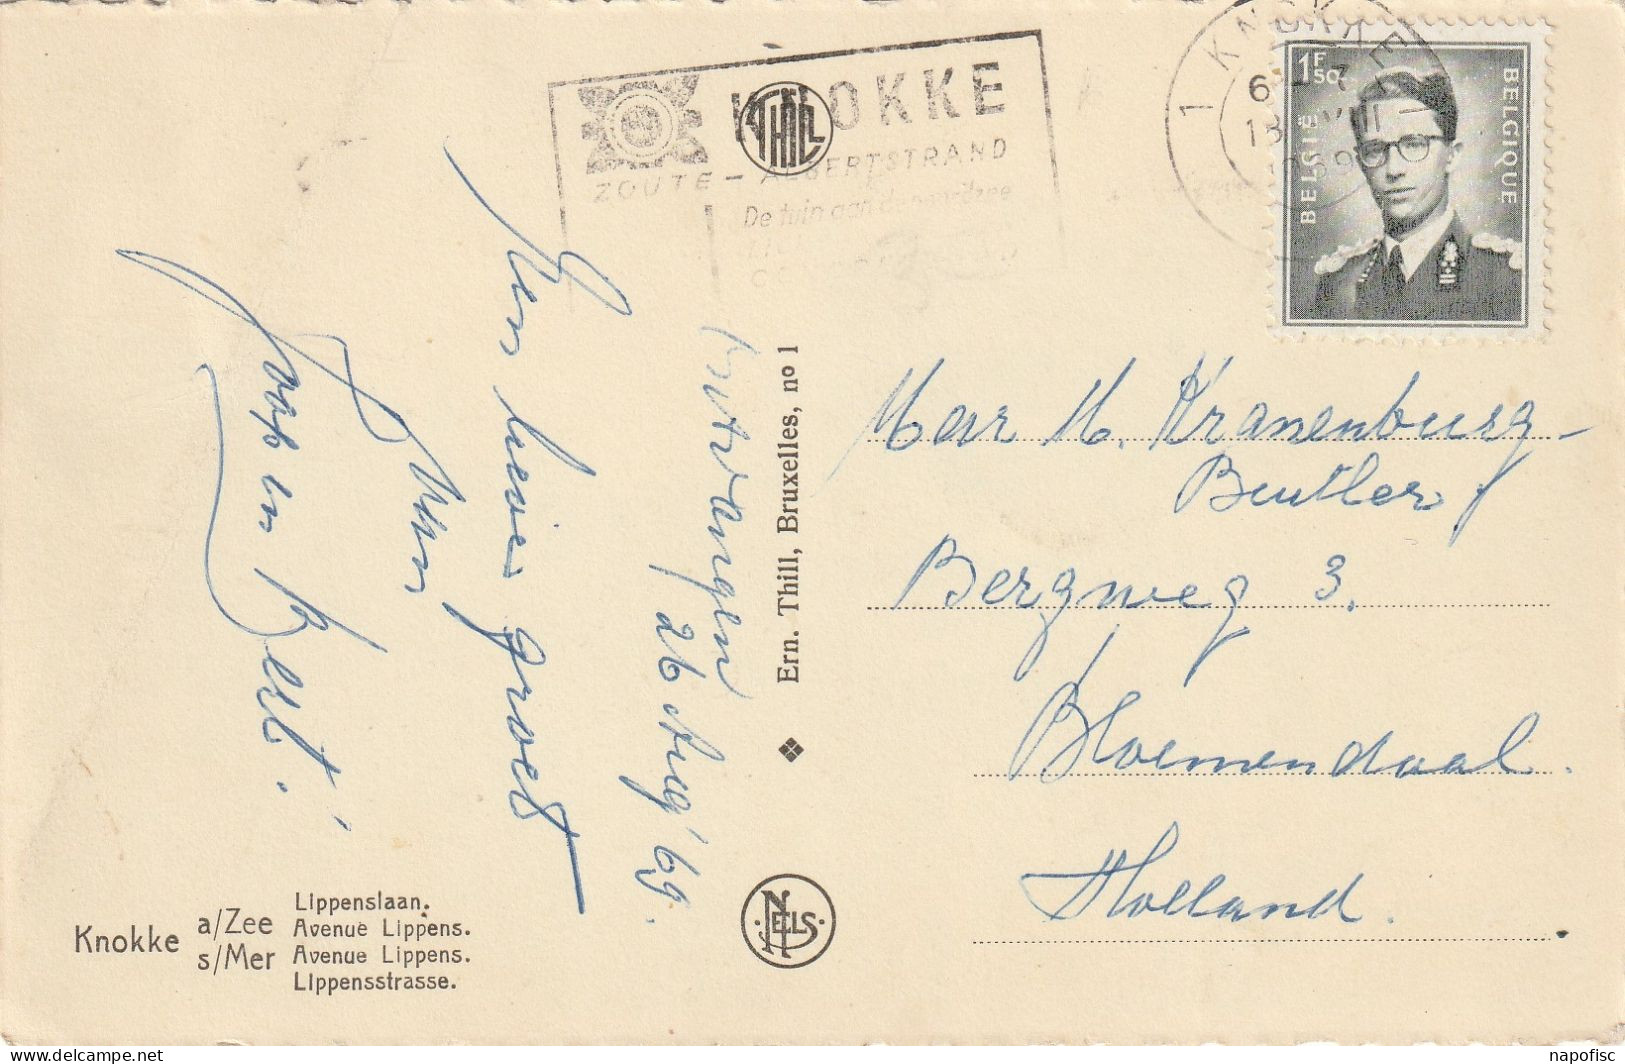 KNOKKE
ZOUTE - ALBERTSTRAND
De tuin aan de noordzee
THILL
1 KNOKKE 1
6
13
1F50
BELGIE
BELGIQUE
Een lieve groet
van
Joop en
Ontvangen
26 Aug '69.
Ern. Thill, Bruxelles, no 1
NELS
Mevr M. Kranenburg-
Beutler
Bergweg 3.
Bloemendaal.
Holland.
Knokke a/Zee s/Mer
Lippenslaan.
Avenue Lippens.
Avenue Lippens.
Lippensstrasse.
delcampe.net
napofisc